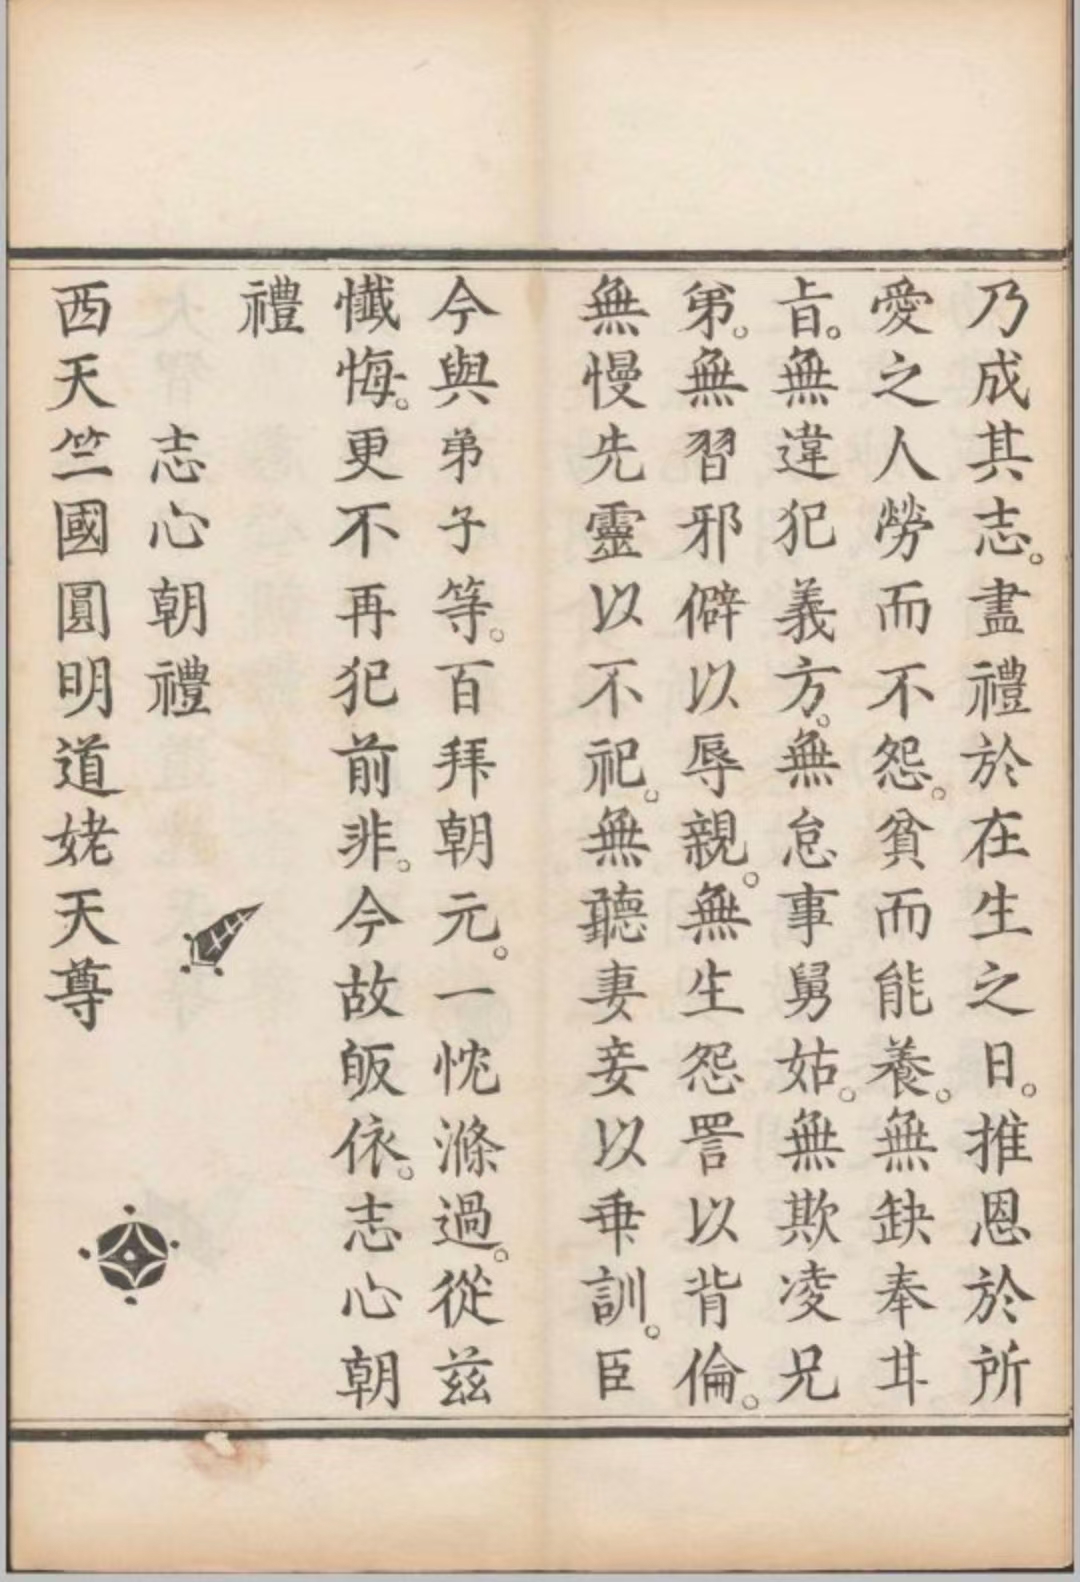 乃成其志。盡禮於在生之日。推恩於所
愛之人勞而不怨。貧而能養。無缺奉甘
旨。無違犯義方。無怠事舅姑。無欺凌兄
弟。無習邪僻以辱親。無生怨詈以背倫。
無慢先靈以不祀。無聽妻妾以乖訓。臣
今與弟子等。百拜朝元。一忱滌過。從茲
懺悔。更不再犯前非。今故皈依。志心朝
禮
志心朝禮
西天竺國圓明道姥天尊